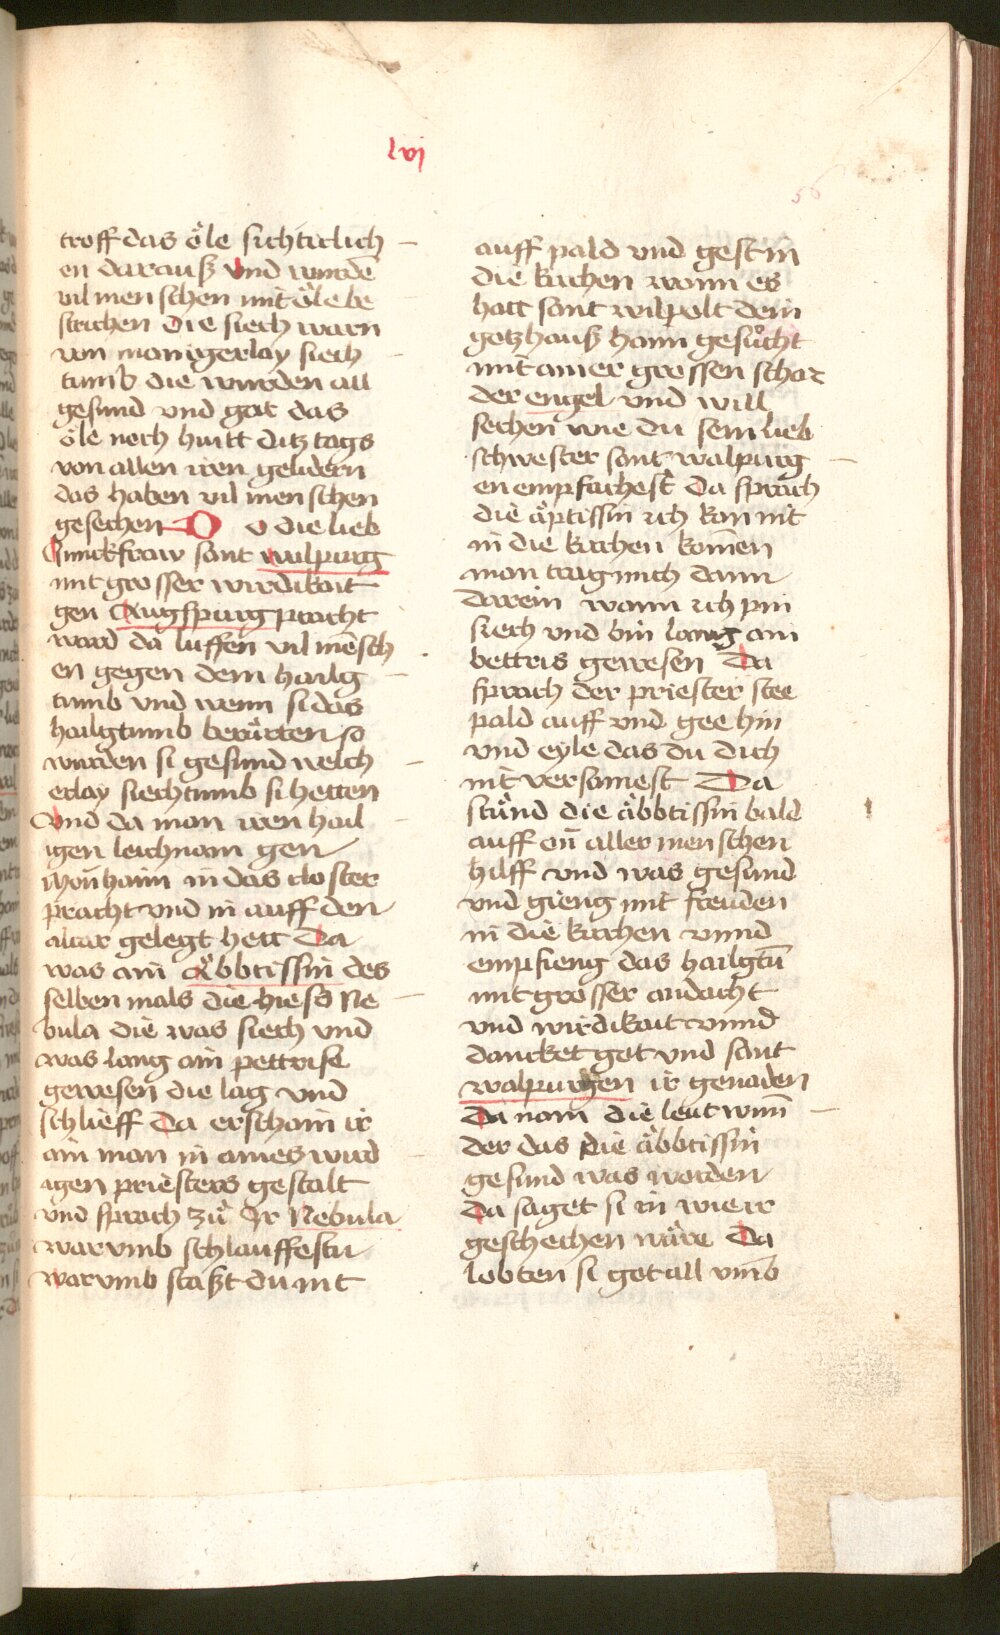 lvj
56
troff das öle sichticlich
en darauß vnd wurdē
vil menschen mit öle be
strichen die siech warn
von manigerlay siech
tumb die wurden all
gesund vnd gat das
öle noch hwtt ditz tags
von allen iren gelidern
das haben vil menschen
gesechen D o die lieb
Junckfraw sant walpurg
mit grosser wirdikait
gen Augspurg pracht
ward da luffen vil mēsch
en gegen dem hailg
tumb vnd wenn si das
hailgtumb berürten so
wurden si gesund welch
erlay siechtumb si hetten
vnd da man iren hail
igen leichnam gen
Monhaim in das closter
pracht vnd in auff den
altar gelegt hett Da
was ain Äbbtissin des
selben mals die hieſs Ne
bula die was siech vnd
was lang ain pettrise
gewesen die lag vnd
schlieff Da erschain ir
ain man in aines wird
igen priesters gestalt
vnd sprach zů Ir Nebula
warvmb schlauffestu
warvmb staßt du nit
auff pald vnd gest in
die kirchen wann es
hatt sant wilpolt dem
gotzhauß haim gesůcht
mit ainer grossen schar
der engel vnd will
sechen wie du sein lieb
schwester sant walpurg
en empfachest Da sprach
die äptissin ich kan nit
in die kirchen komen
man trag mich dann
darein wann ich pin
siech vnd bin lang ain
bettris gewesen Da
sprach der priester stee
pald auff vnd gee hin
vnd eyle das du dich
nit versamest Da
stůnd die äbbtissin bald
auff on aller menschen
hilff vnd was gesund
vnd gieng mit freuden
in die kirchen vnnd
empfieng das hailgtū
mit grosser andacht
vnd wirdikait vnnd
dancket got vnd sant
walpurgen ir genaden
Da nam die leut wun
der das die äbbtissin
gesund was worden
Da saget si in wie ir
geschechen wäre Da
lobten si got all vmb